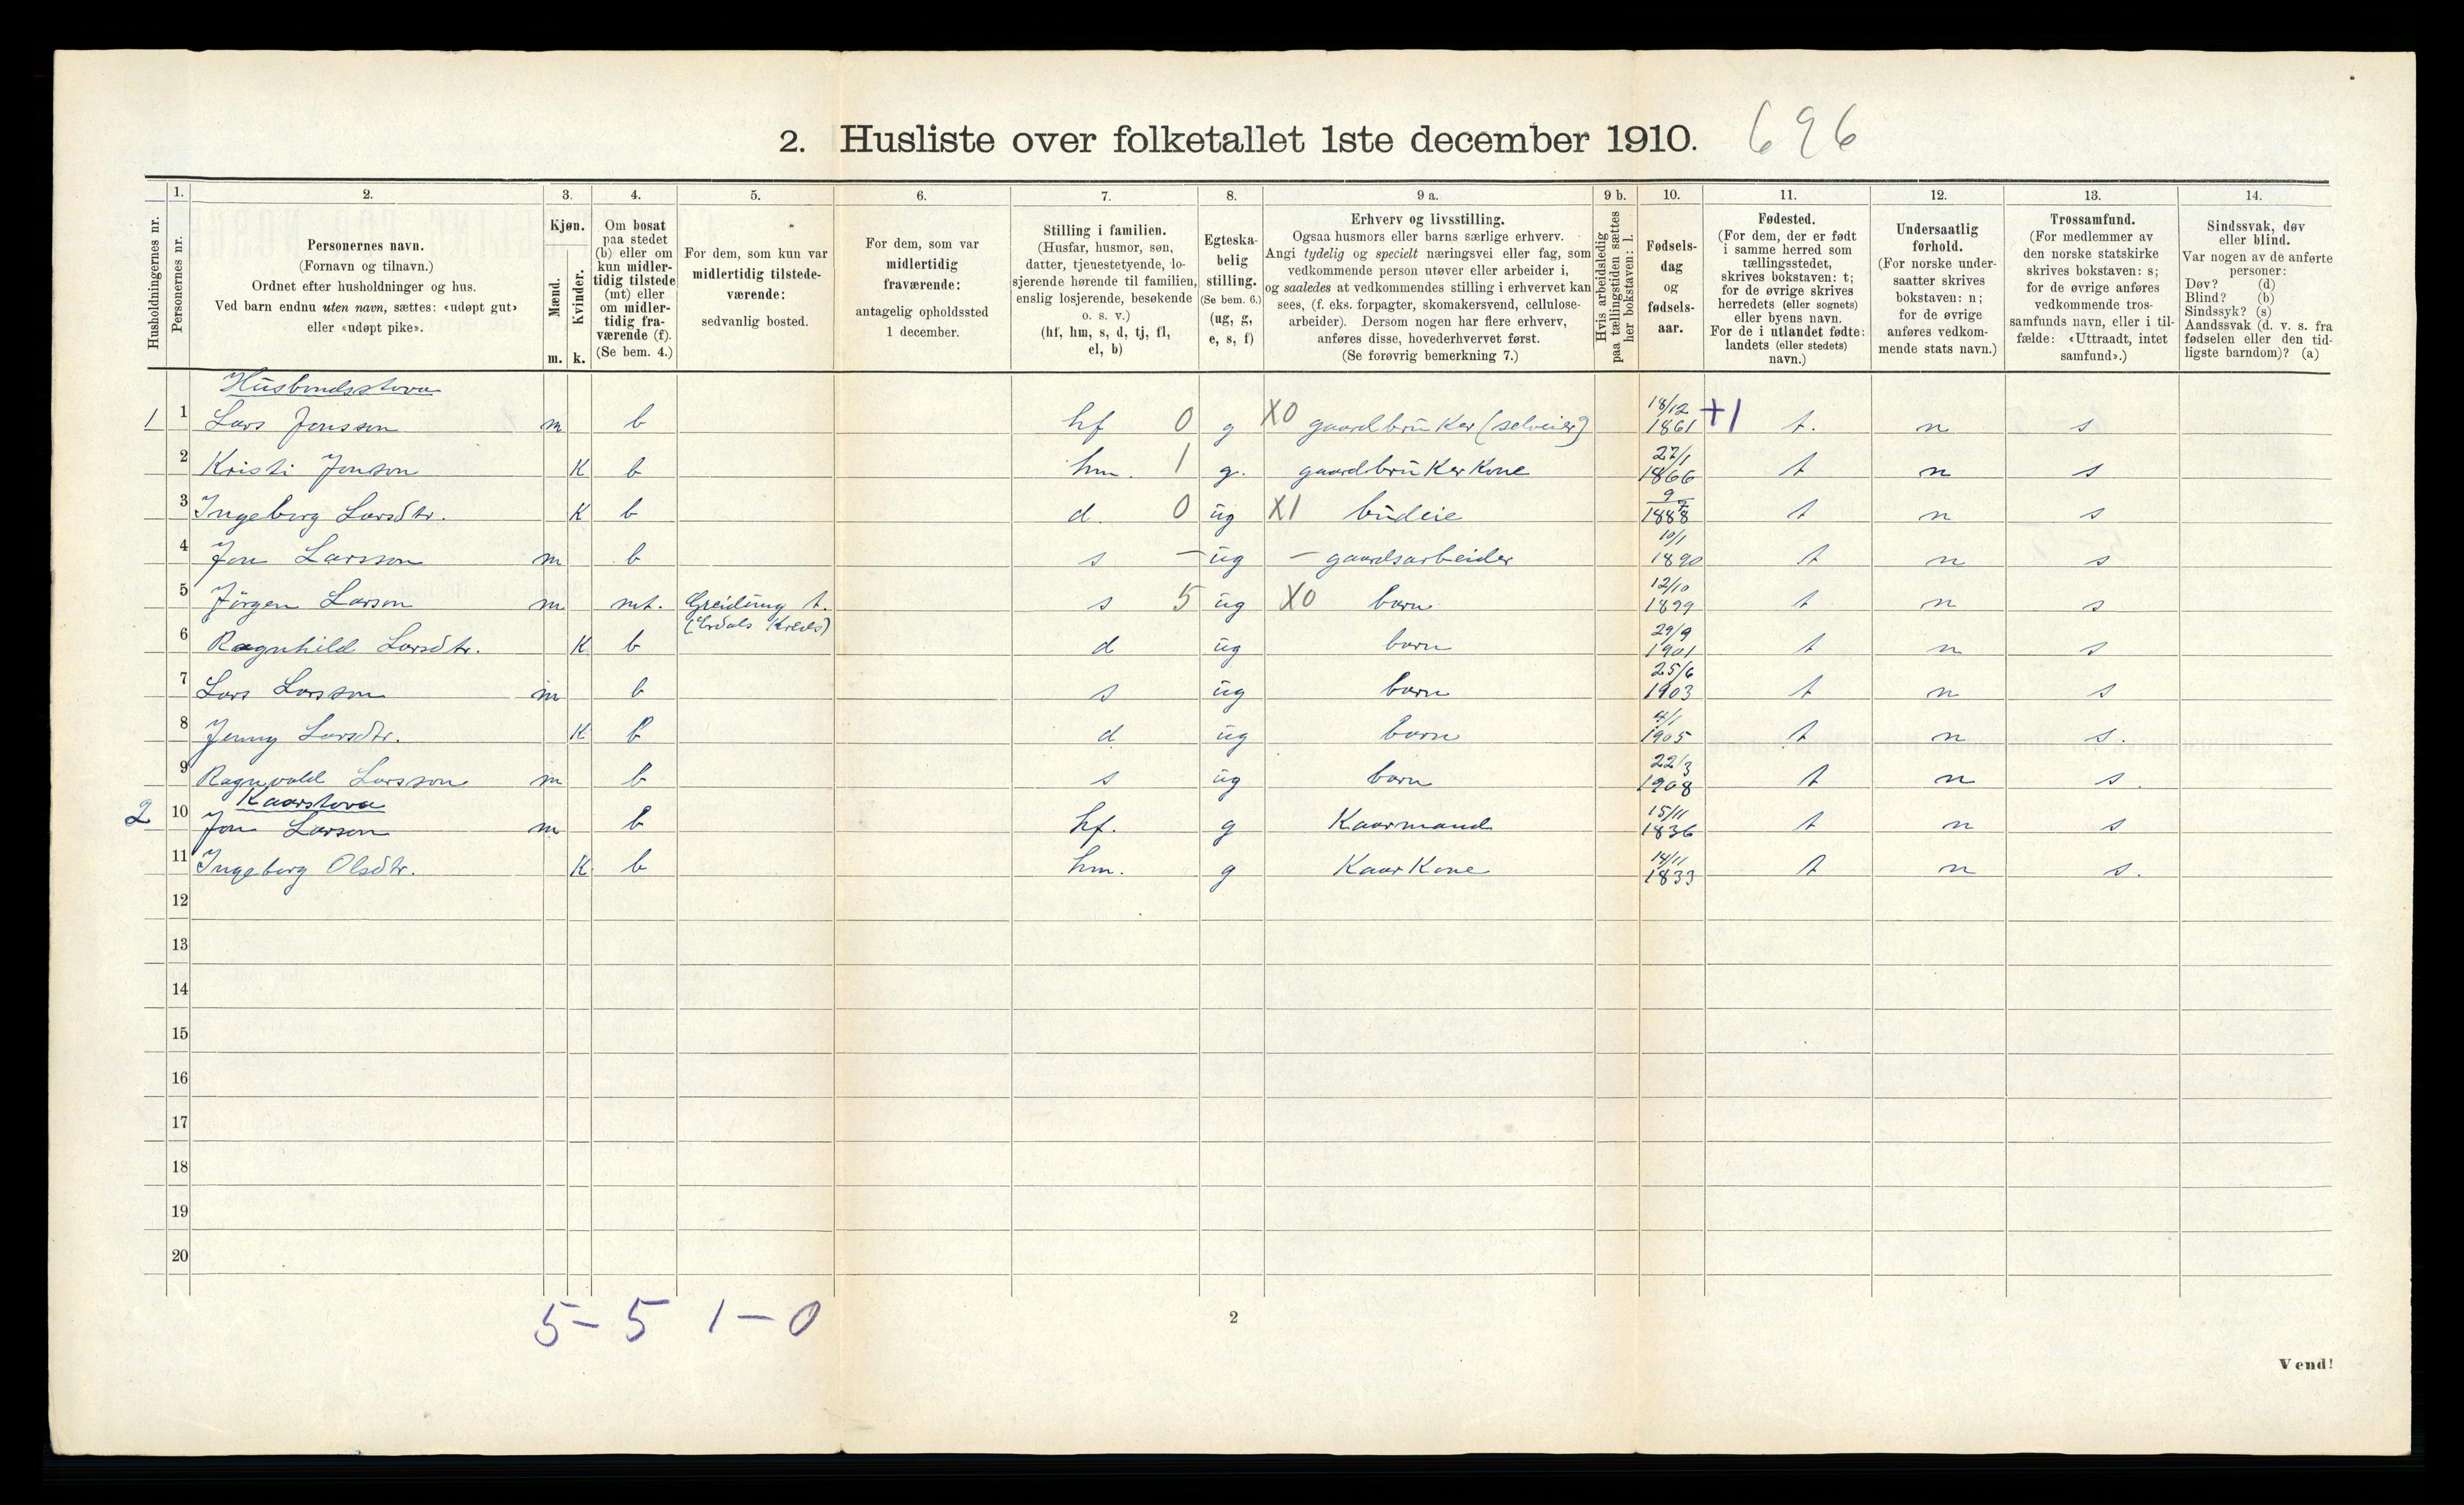 2. Husliste over folketallet 1ste december 1910. 696
Husholdningernes nr.
1. Personernes nr.
2. Personernes navn.
(Fornavn og tilnavn.)
Ordnet efter husholdninger og hus.
Ved barn endnu uten navn, sættes: «udøpt gut»
eller «udøpt pike».
3. Kjøn.
Mænd. m.
Kvinder. k.
4. Om bosat
paa stedet
(b) eller om
kun midler-
tidig tilstede
(mt) eller
om midler-
tidig fra-
værende (f).
(Se bem. 4.)
5. For dem, som kun var
midlertidig tilstede-
værende:
sedvanlig bosted.
6. For dem, som var
midlertidig
fraværende:
antagelig opholdssted
1 december.
7. Stilling i familien.
(Husfar, husmor, søn,
datter, tjenestetyende, lo-
sjerende hørende til familien,
enslig losjerende, besøkende
o. s. v.)
(hf, hm, s, d, tj, fl,
el, b)
8. Egteska-
belig
stilling.
(Se bem. 6.)
(ug, g,
e, s, f)
9 a. Erhverv og livsstilling.
Ogsaa husmors eller barns særlige erhverv.
Angi tydelig og specielt næringsvei eller fag, som
vedkommende person utøver eller arbeider i,
og saaledes at vedkommendes stilling i erhvervet kan
sees, (f. eks. forpagter, skomakersvend, cellulose-
arbeider). Dersom nogen har flere erhverv,
anføres disse, hovederhvervet først.
(Se forøvrig bemerkning 7.)
9 b. Hvis arbeidsledig
paa tællingstiden sættes
her bokstaven: l.
10. Fødsels-
dag
og
fødsels-
aar.
11. Fødested.
(For dem, der er født
i samme herred som
tællingsstedet,
skrives bokstaven: t;
for de øvrige skrives
herredets (eller sognets)
eller byens navn.
For de i utlandet fødte:
landets (eller stedets)
navn.)
12. Undersaatlig
forhold.
(For norske under-
saatter skrives
bokstaven: n;
for de øvrige
anføres vedkom-
mende stats navn.)
13. Trossamfund.
(For medlemmer av
den norske statskirke
skrives bokstaven: s;
for de øvrige anføres
vedkommende tros-
samfunds navn, eller i til-
fælde: «Uttraadt, intet
samfund».)
14. Sindssvak, døv
eller blind.
Var nogen av de anførte
personer:
Døv? (d)
Blind? (b)
Sindssyk? (s)
Aandssvak (d. v. s. fra
fødselen eller den tid-
ligste barndom)? (a)
Husbondsstova
1 1 Lars Jonsson m b hf 0 g X0 gaardbruker (selveier) 18/12 1861 +1 t. n s
2 Kristi Jonson K b hm. 1 g. gaardbrukerkone 22/1 1866 t n s
3 Ingeborg Larsdtr. K b d. 0 ug X1 budeie 1888 t n s
4 Jon Larsson m b s – ug – gaardsarbeider 10/1 1890 t n s
5 Jörgen Larson m mt. Greidung t. s 5 ug X0 barn 12/10 1899 t n s
(Erdals Kreds)
6 Ragnhild Larsdtr. K b d ug barn 29/9 1901 t n s
7 Lars Larsson m b s ug barn 25/6 1903 t n s
8 Jenny Larsdtr. K b d ug barn 4/1 1905 t n s.
9 Ragnvald Larsson m b s ug barn 22/3 1908 t n s.
Kaarstova
2 10 Jon Larson m b hf. g Kaarmand 15/11 1836 t n s
11 Ingeborg Olsdtr. K b hm. g Kaarkone 14/11 1833 t n s.
12
13
14
15
16
17
18
19
20
5 – 5 1 – 0
2
Vend!